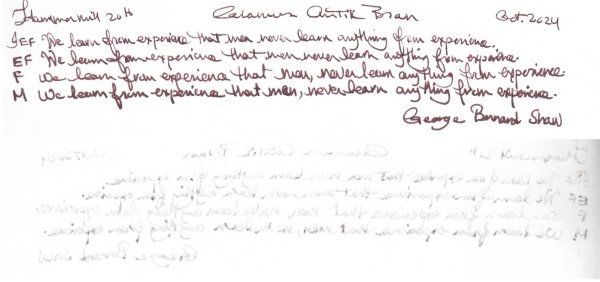 Hammermill 20lb Calamus Antik Braun Oct. 2024
JEF We learn from experience that men never learn anything from experience.
EF We learn from experience that men never learn anything from experience.
F We learn from experience that men, never learn anything from experience.
M We learn from experience that men, never learn anything from experience.
George Bernard Shaw